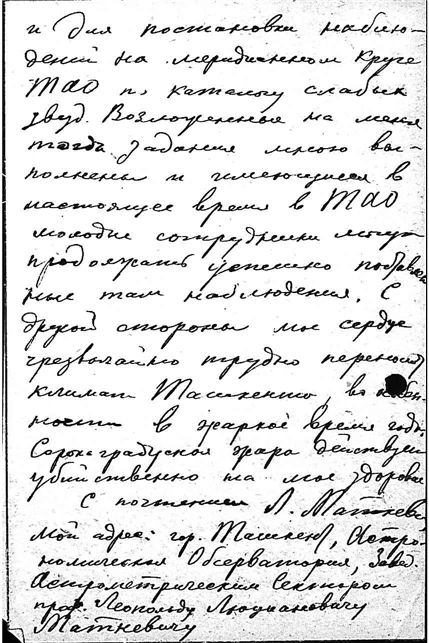 и для постановки наблю-
дений на меридианном круге
ТАО по каталогу слабых
звезд. Возложенные на меня
тогда задания мною вы-
полнены и имеющиеся в
настоящее время в ТАО
молодые сотрудники могут
продолжать успешно поставлен
ные там наблюдения. С
другой стороны мое сердце
чрезвычайно трудно переносит
климат Ташкента, в особен-
ности в жаркое время года.
Сорокаградусная жара действует
убийственно на мое здоровье
С почтением Л. Маткев
Мой адрес: гор. Ташкент, Астро-
номическая Обсерватория, Завед.
Астрометрическим Сектором
проф. Леопольду Люциановичу
Маткевичу